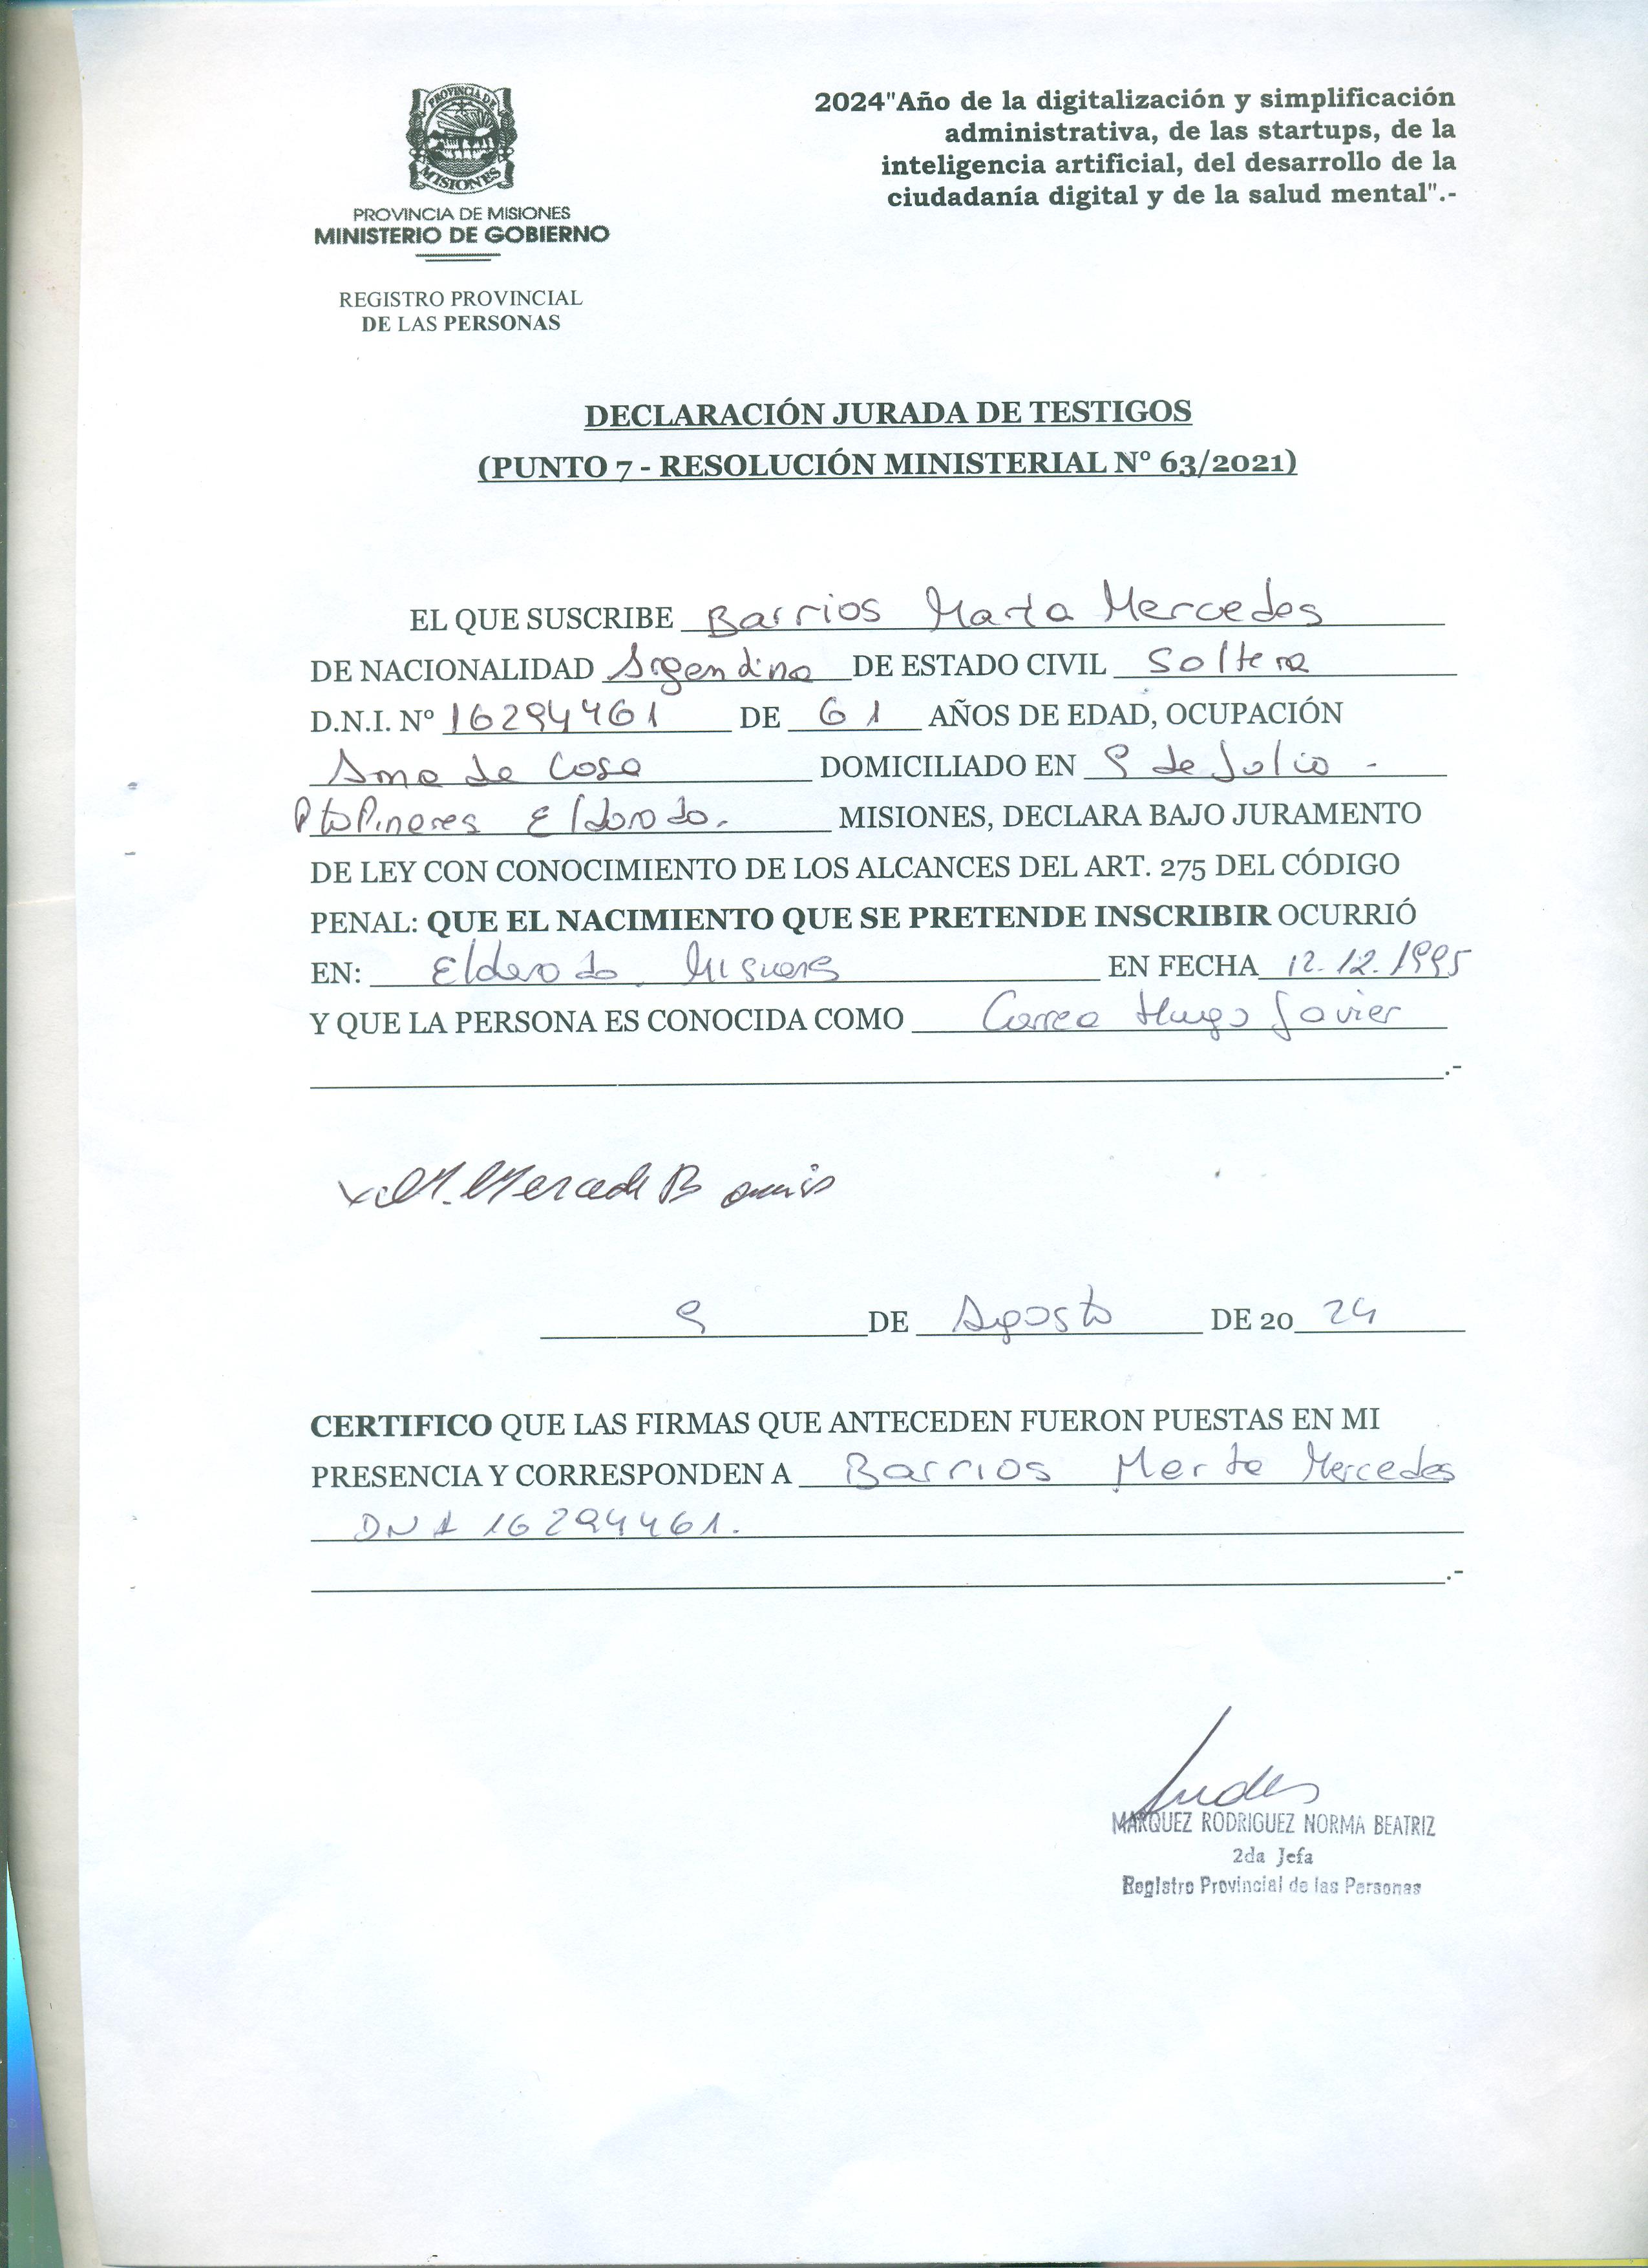 PROVINCIA DE
MISIONES
PROVINCIA DE MISIONES
MINISTERIO DE GOBIERNO
REGISTRO PROVINCIAL
DE LAS PERSONAS
2024"Año de la digitalización y simplificación
administrativa, de las startups, de la
inteligencia artificial, del desarrollo de la
ciudadanía digital y de la salud mental".-
DECLARACIÓN JURADA DE TESTIGOS
(PUNTO 7 - RESOLUCIÓN MINISTERIAL Nº 63/2021)
EL QUE SUSCRIBE Barrios Marta Mercedes
DE NACIONALIDAD Argentina DE ESTADO CIVIL Soltera
D.N.I. Nº 16294461 DE 61 AÑOS DE EDAD, OCUPACIÓN
Ama de Casa DOMICILIADO EN 9 de Julio -
Pto Pinares Eldorado. MISIONES, DECLARA BAJO JURAMENTO
DE LEY CON CONOCIMIENTO DE LOS ALCANCES DEL ART. 275 DEL CÓDIGO
PENAL: QUE EL NACIMIENTO QUE SE PRETENDE INSCRIBIR OCURRIÓ
EN: Eldorado Misiones EN FECHA 12.12.1995
Y QUE LA PERSONA ES CONOCIDA COMO Correa Hugo Javier
.-
x M. Mercede Barrios
9 DE Agosto DE 20 24
CERTIFICO QUE LAS FIRMAS QUE ANTECEDEN FUERON PUESTAS EN MI
PRESENCIA Y CORRESPONDEN A Barrios Marta Mercedes
DNI 16294461.
.-
MARQUEZ RODRIGUEZ NORMA BEATRIZ
2da Jefa
Registro Provincial de las Personas